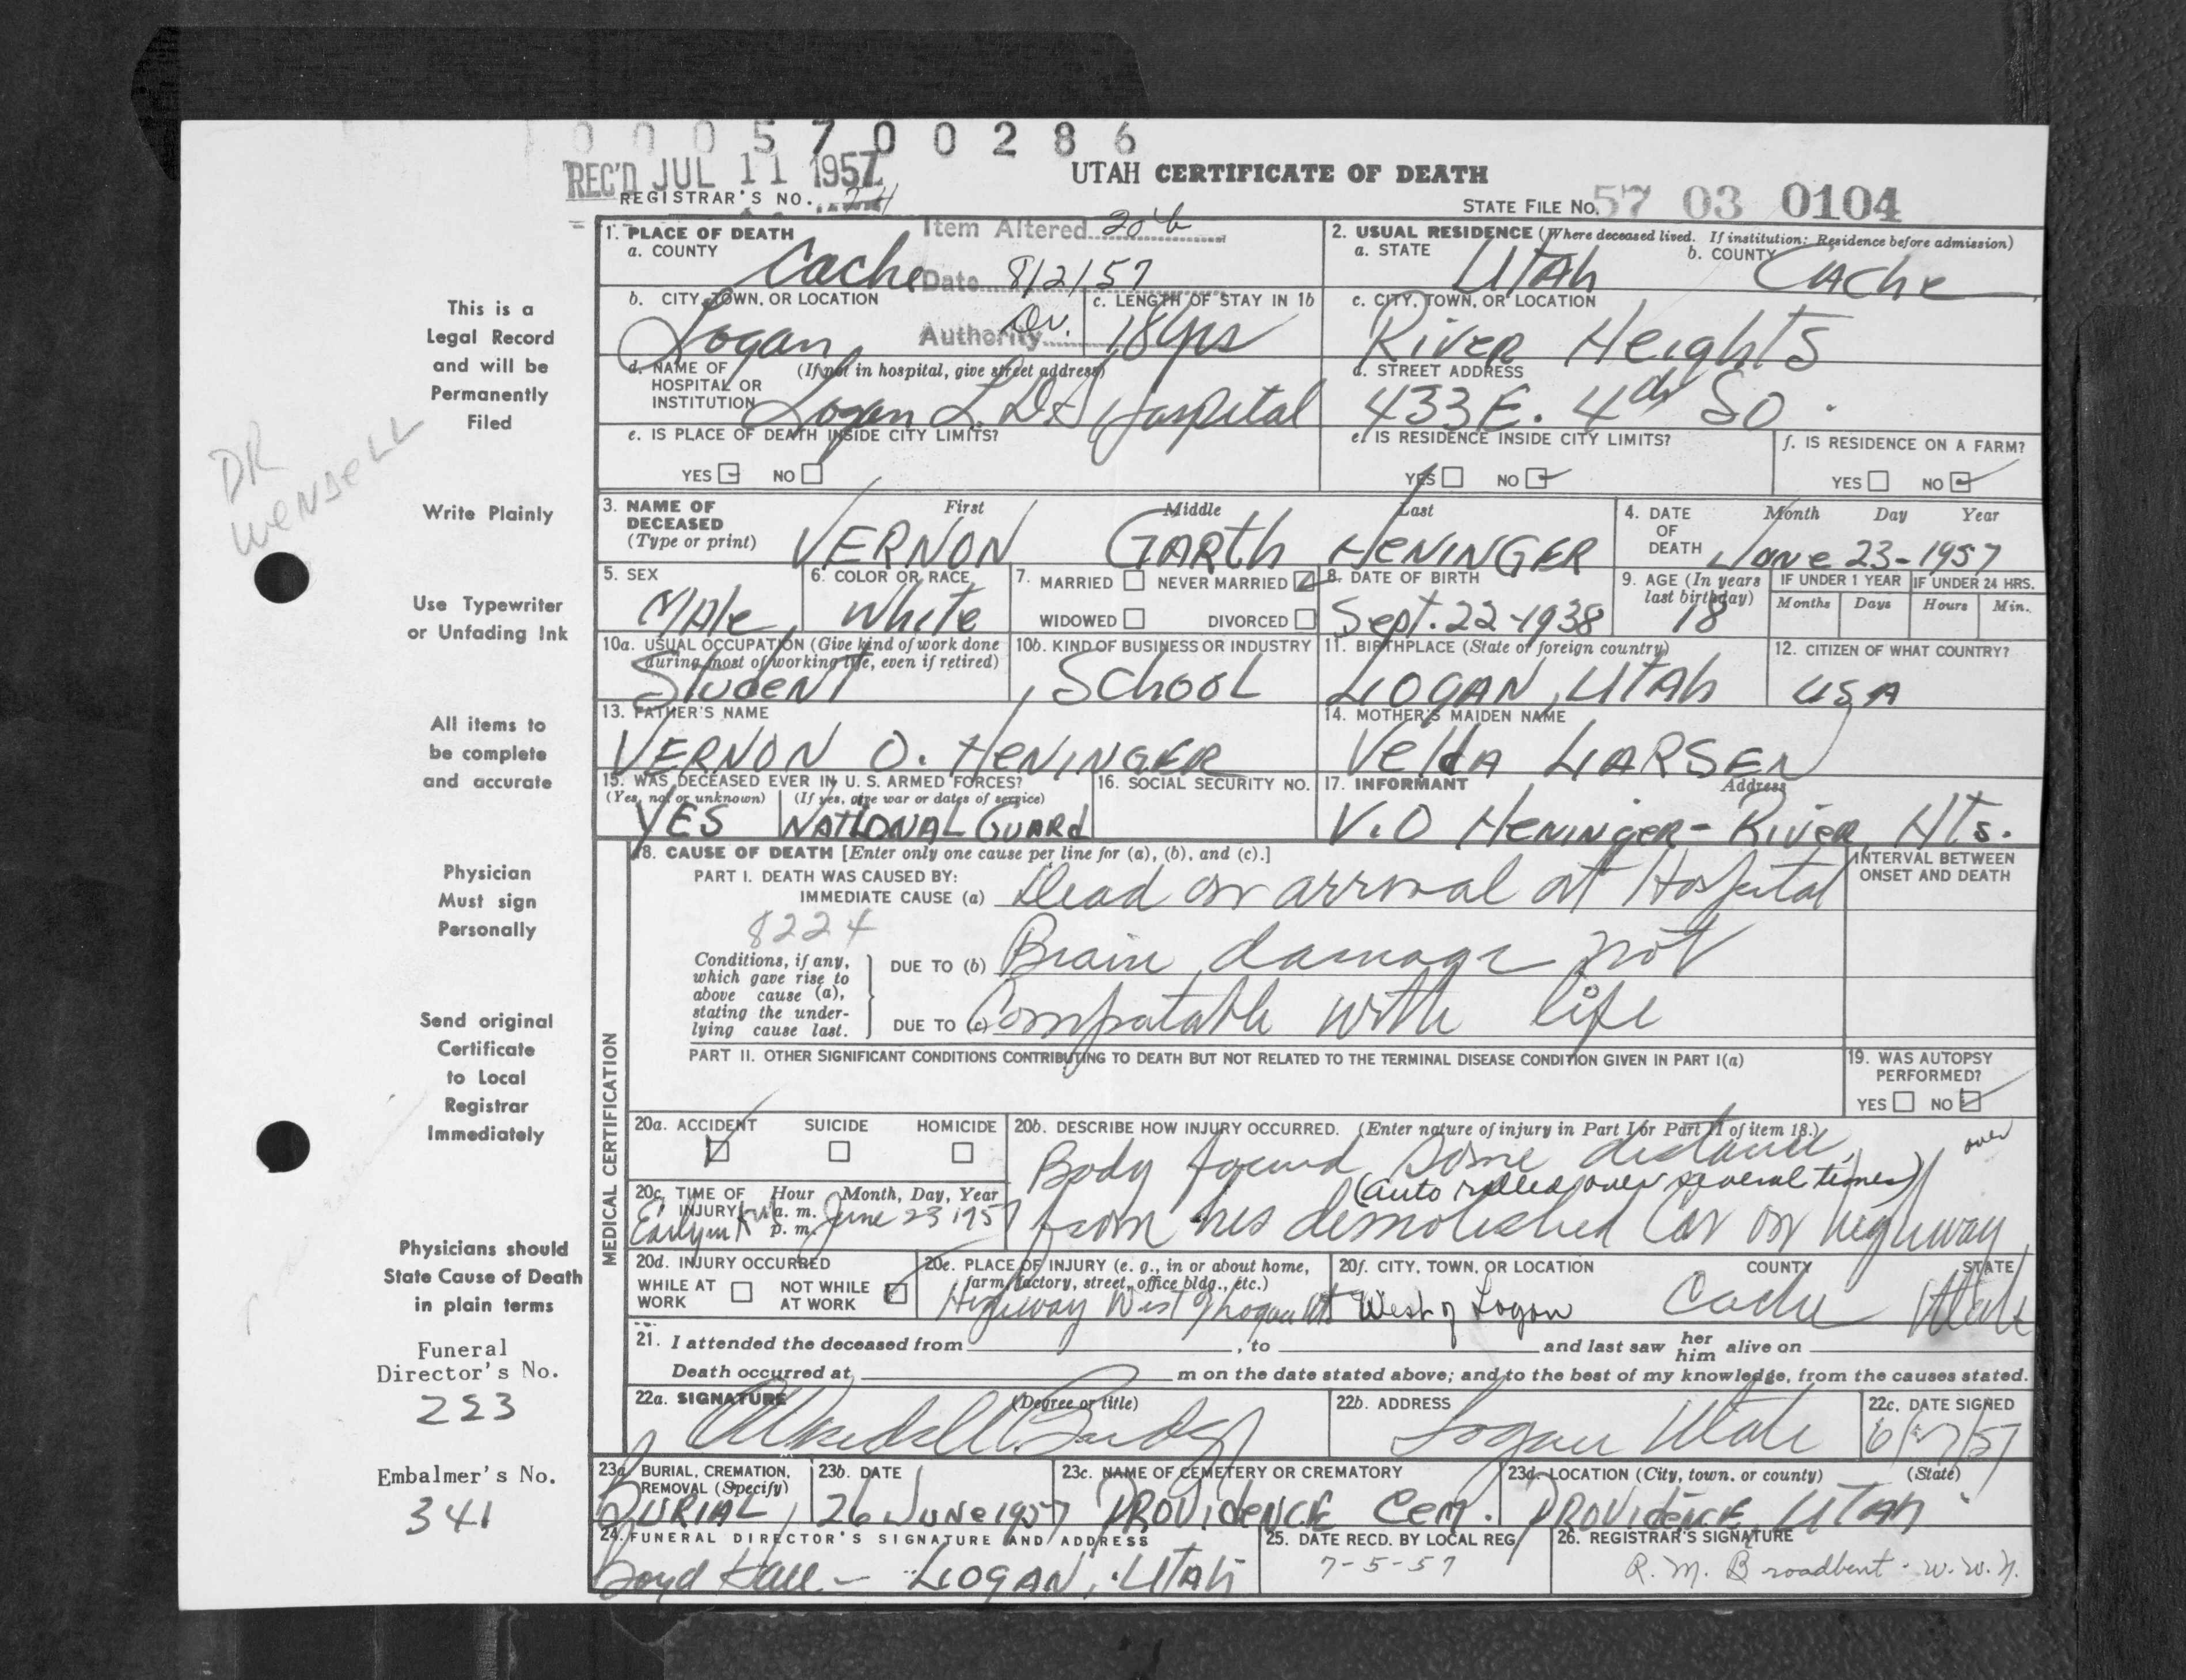 0005700286
REC'D JUL 11 1957
UTAH CERTIFICATE OF DEATH
REGISTRAR'S NO. 24
STATE FILE NO. 57 03 0104
Item Altered 20b
Date 8/2/57
Authority Dr.
1. PLACE OF DEATH
a. COUNTY
Cache
2. USUAL RESIDENCE (Where deceased lived. If institution: Residence before admission)
a. STATE
Utah
b. COUNTY
Cache
b. CITY, TOWN, OR LOCATION
Logan
c. LENGTH OF STAY IN 1b
18 yrs
c. CITY, TOWN, OR LOCATION
River Heights
d. NAME OF HOSPITAL OR INSTITUTION (If not in hospital, give street address)
Logan L.D.S Hospital
d. STREET ADDRESS
433 E. 4th So.
e. IS PLACE OF DEATH INSIDE CITY LIMITS?
YES NO
e. IS RESIDENCE INSIDE CITY LIMITS?
YES NO
f. IS RESIDENCE ON A FARM?
YES NO
3. NAME OF DECEASED (Type or print)
First Middle Last
VERNON GARTH HENINGER
4. DATE OF DEATH
Month Day Year
June 23-1957
5. SEX
Male
6. COLOR OR RACE
White
7. MARRIED NEVER MARRIED
WIDOWED DIVORCED
8. DATE OF BIRTH
Sept. 22-1938
9. AGE (In years last birthday)
18
IF UNDER 1 YEAR
Months Days
IF UNDER 24 HRS.
Hours Min.
10a. USUAL OCCUPATION (Give kind of work done during most of working life, even if retired)
Student
10b. KIND OF BUSINESS OR INDUSTRY
School
11. BIRTHPLACE (State or foreign country)
LOGAN, UTAH
12. CITIZEN OF WHAT COUNTRY?
USA
13. FATHER'S NAME
VERNON O. HENINGER
14. MOTHER'S MAIDEN NAME
Velda LARSEN
15. WAS DECEASED EVER IN U. S. ARMED FORCES?
(Yes, no, or unknown) (If yes, give war or dates of service)
YES NATIONAL GUARD
16. SOCIAL SECURITY NO.
17. INFORMANT Address
V.O HENINGER - RIVER HTS.
18. CAUSE OF DEATH [Enter only one cause per line for (a), (b), and (c).]
INTERVAL BETWEEN ONSET AND DEATH
PART I. DEATH WAS CAUSED BY:
IMMEDIATE CAUSE (a) Dead on arrival at Hospital
8224
Conditions, if any, which gave rise to above cause (a), stating the underlying cause last.
DUE TO (b) Brain damage not
DUE TO (c) Compatable with life
PART II. OTHER SIGNIFICANT CONDITIONS CONTRIBUTING TO DEATH BUT NOT RELATED TO THE TERMINAL DISEASE CONDITION GIVEN IN PART I(a)
19. WAS AUTOPSY PERFORMED?
YES NO
20a. ACCIDENT SUICIDE HOMICIDE
20b. DESCRIBE HOW INJURY OCCURRED. (Enter nature of injury in Part I or Part II of item 18.)
Body found some distance over
(auto rolled over several times)
from his demolished Car on highway
20c. TIME OF INJURY Hour Month, Day, Year
a. m.
p. m.
June 23 1957
20d. INJURY OCCURRED
WHILE AT WORK NOT WHILE AT WORK
20e. PLACE OF INJURY (e. g., in or about home, farm, factory, street, office bldg., etc.)
Highway West of Logan Ut
20f. CITY, TOWN, OR LOCATION COUNTY STATE
West of Logan Cache Utah
21. I attended the deceased from , to and last saw her him alive on
Death occurred at m on the date stated above; and to the best of my knowledge, from the causes stated.
22a. SIGNATURE (Degree or title)
22b. ADDRESS
Logan Utah
22c. DATE SIGNED
23a. BURIAL, CREMATION, REMOVAL (Specify)
BURIAL
23b. DATE
26 June 1957
23c. NAME OF CEMETERY OR CREMATORY
PROVIDENCE Cem.
23d. LOCATION (City, town, or county) (State)
PROVIDENCE, UTAH
24. FUNERAL DIRECTOR'S SIGNATURE AND ADDRESS
Boyd Hall - LOGAN, UTAH
25. DATE RECD. BY LOCAL REG.
7-5-57
26. REGISTRAR'S SIGNATURE
R. M. Broadbent - W. W. N.
MEDICAL CERTIFICATION
This is a
Legal Record
and will be
Permanently
Filed
DR
WENDELL
Write Plainly
Use Typewriter
or Unfading Ink
All items to
be complete
and accurate
Physician
Must sign
Personally
Send original
Certificate
to Local
Registrar
Immediately
Physicians should
State Cause of Death
in plain terms
Funeral
Director's No.
253
Embalmer's No.
341